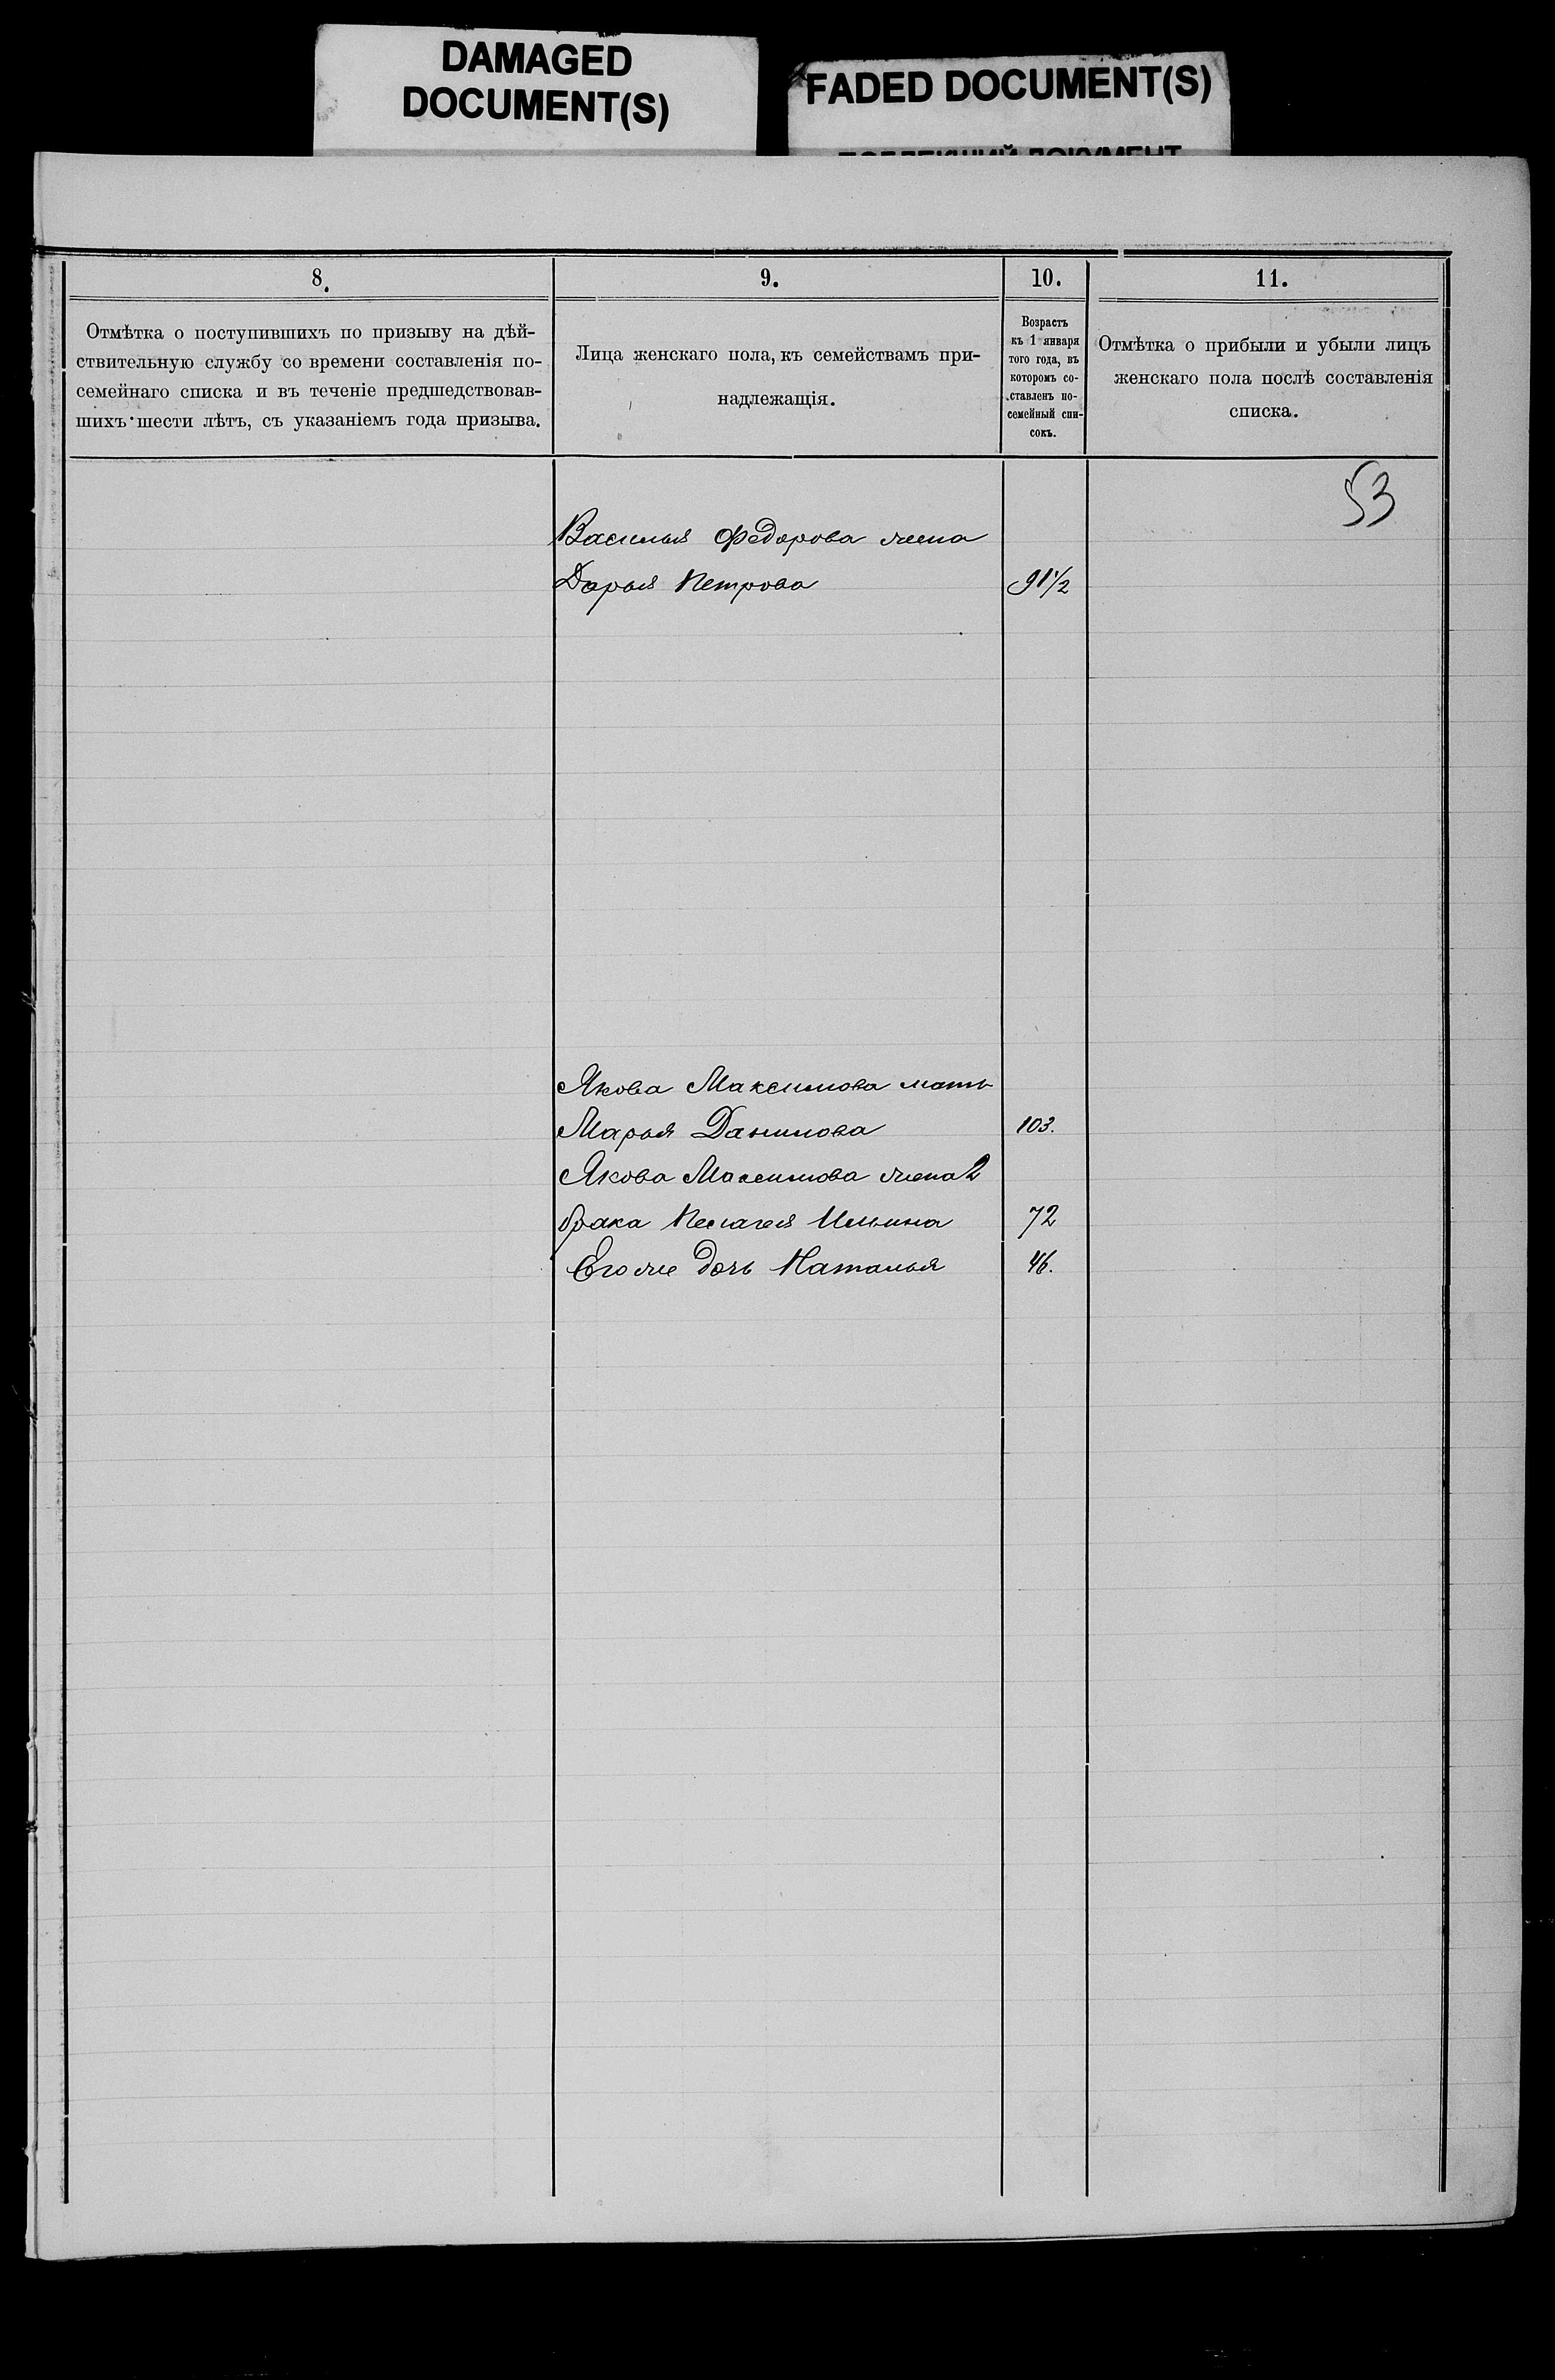 DAMAGED
DOCUMENT(S)
FADED DOCUMENT(S)
8.
Отмѣтка о поступившихъ по призыву на дѣй-
ствительную службу со времени составленія по-
семейнаго списка и въ теченіе предшедствовав-
шихъ шести лѣтъ, съ указаніемъ года призыва.
9.
Лица женскаго пола, къ семействамъ при-
надлежащія.
10.
Возрастъ
къ 1 января
того года, въ
которомъ со-
ставленъ по-
семейный спи-
сокъ.
11.
Отмѣтка о прибыли и убыли лицъ
женскаго пола послѣ составленія
списка.
53
Василья Федорова жена
Дарья Петрова 91½
Якова Максимова мать
Марья Данилова 103.
Якова Максимова жена 2
брака Пелагея Ильина 72
Его же дочь Наталья 46.